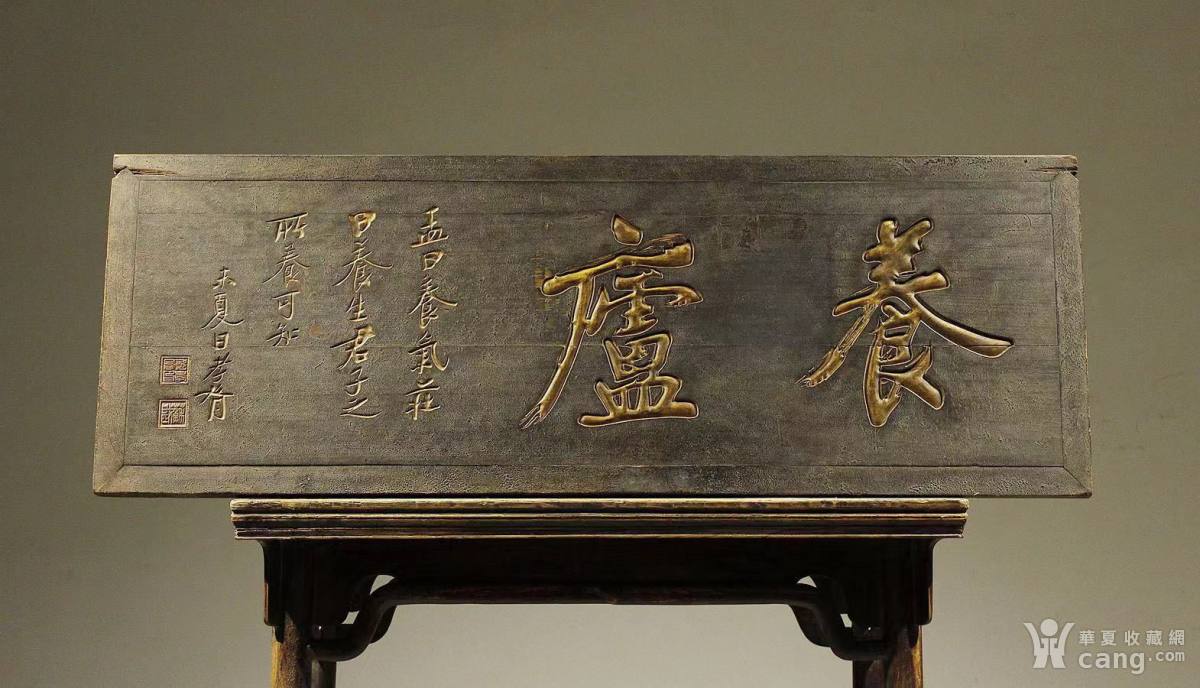 養廬
孟曰養氣莊
曰養生君子之
所養可知
未夏日孝胥
華夏收藏網
cang.com